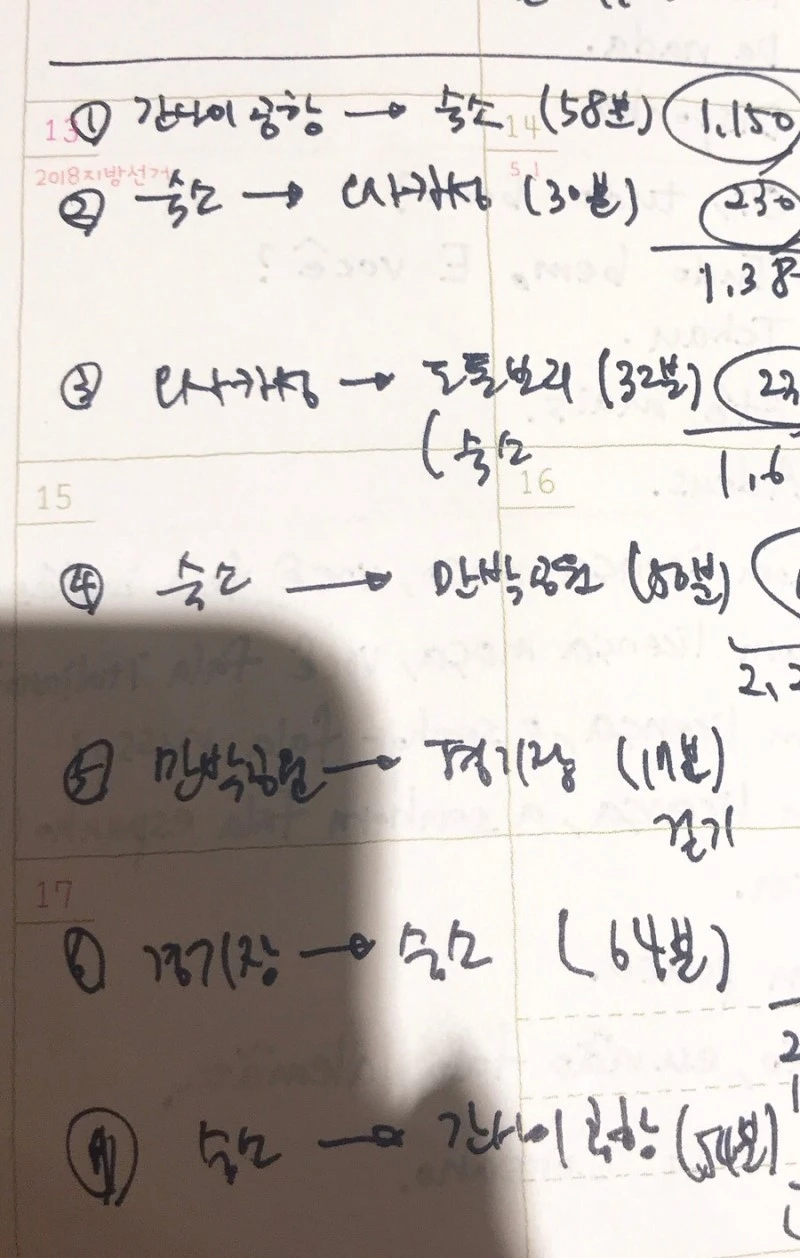 13 ① 간사이 공항 → 숙소 (58분) 1,150
14
2018지방선거
5.1
② 숙소 → 오사카성 (30분) 230
1,38
③ 오사카성 → 도톤보리 (32분) 23
(숙소
1,6
15
16
④ 숙소 → 만박공원 (50분)
2,2
⑤ 만박공원 → 경기장 (17분)
걷기
17
⑥ 경기장 → 숙소 (64분)
2
1
숙소 → 간사이 공항 (54분)